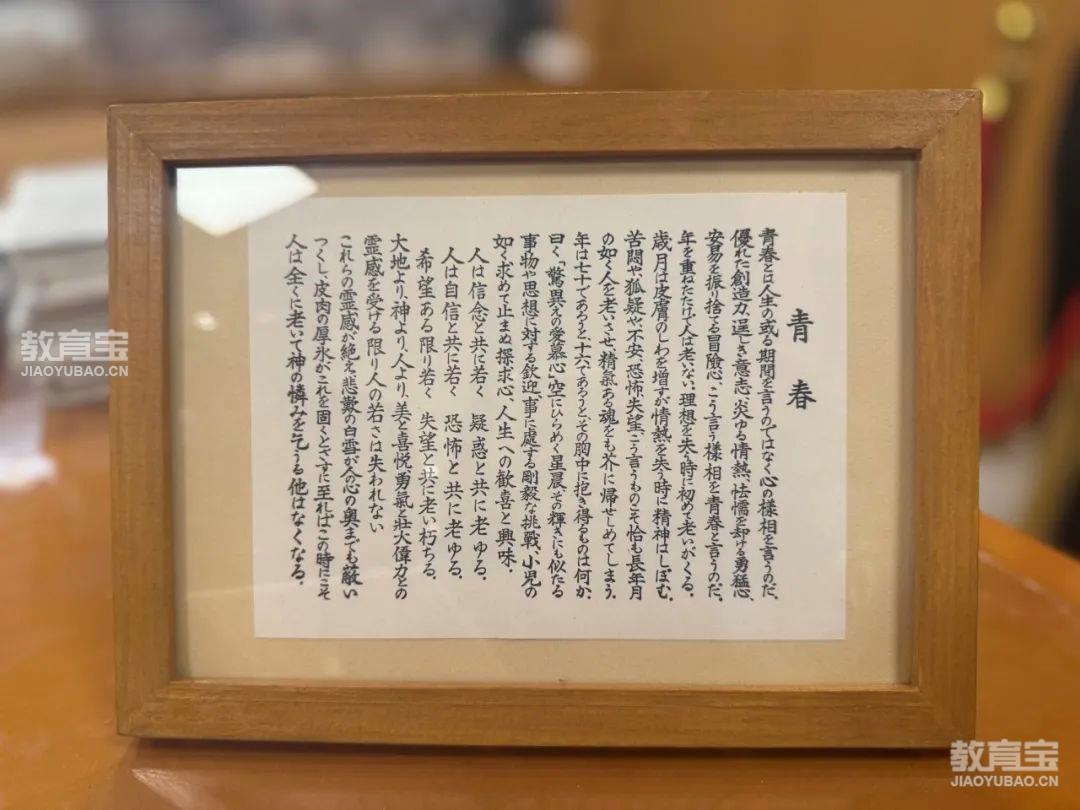 青春
青春とは人生の或る期間を言うのではなく心の様相を言うのだ、
優れた創造力、逞しき意志、炎ゆる情熱、怯懦を却ける勇猛心、
安易を振り捨てる冒険心、こう言う様相を青春と言うのだ。
年を重ねただけで人は老いない、理想を失う時に初めて老いがくる。
歳月は皮膚のしわを増すが情熱を失う時に精神はしぼむ。
苦悶や、狐疑や、不安、恐怖、失望、こう言うものこそ恰も長年月
の如く人を老いさせ、精氣ある魂をも芥に帰せしめてしまう。
年は七十であろうと、十六であろうと、その胸中に抱き得るものは何か、
曰く「驚異えの愛慕心」空にひらめく星晨、その輝きにも似たる
事物や思想に対する欽迎、事に處する剛毅な挑戦、小児の
如く求めて止まぬ探求心、人生への歓喜と興味。
人は信念と共に若く 疑惑と共に老ゆる。
人は自信と共に若く 恐怖と共に老ゆる。
希望ある限り若く 失望と共に老い朽ちる。
大地より、神より、人より、美と喜悦、勇氣と壮大偉力との
霊感を受ける限り人の若さは失われない
これらの霊感が絶え、悲歎の白雪が人の心の奥までも蔽い
つくし、皮肉の厚氷がこれを固くとざすに至ればこの時にこそ
人は全くに老いて神の憐みを乞うる他はなくなる。
教育宝
JIAOYUBAO.CN
教育宝
JIAOYUBAO.CN